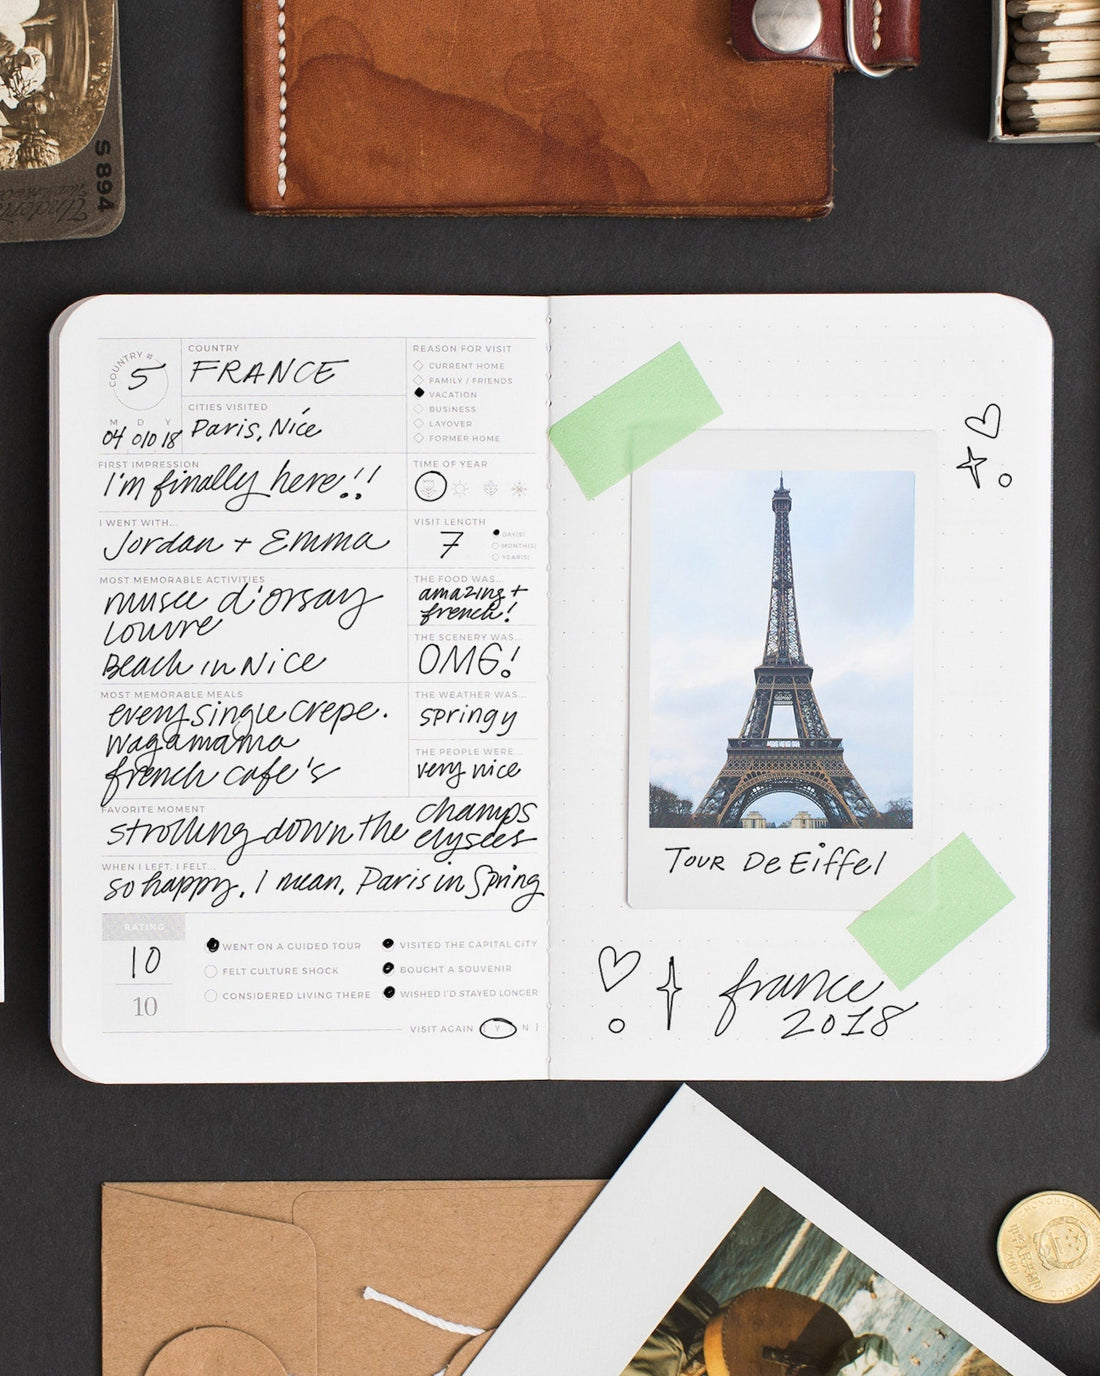 S 894
COUNTRY #
5
COUNTRY
FRANCE
CITIES VISITED
Paris, Nice
M D Y
04 010 18
REASON FOR VISIT
CURRENT HOME
FAMILY / FRIENDS
VACATION
BUSINESS
LAYOVER
FORMER HOME
FIRST IMPRESSION
I'm finally here!!
TIME OF YEAR
I WENT WITH...
Jordan + Emma
VISIT LENGTH
7
DAY(S)
MONTH(S)
YEAR(S)
MOST MEMORABLE ACTIVITIES
musee d'orsay
Louvre
Beach in Nice
THE FOOD WAS...
amazing +
french!
THE SCENERY WAS...
OMG!
MOST MEMORABLE MEALS
every single crepe.
wagamama
french cafe's
THE WEATHER WAS...
springy
THE PEOPLE WERE...
very nice
FAVORITE MOMENT
strolling down the champs
elysees
WHEN I LEFT, I FELT...
so happy. I mean, Paris in Spring
RATING
10
10
WENT ON A GUIDED TOUR
FELT CULTURE SHOCK
CONSIDERED LIVING THERE
VISITED THE CAPITAL CITY
BOUGHT A SOUVENIR
WISHED I'D STAYED LONGER
VISIT AGAIN [ Y N ]
Tour De Eiffel
france
2018